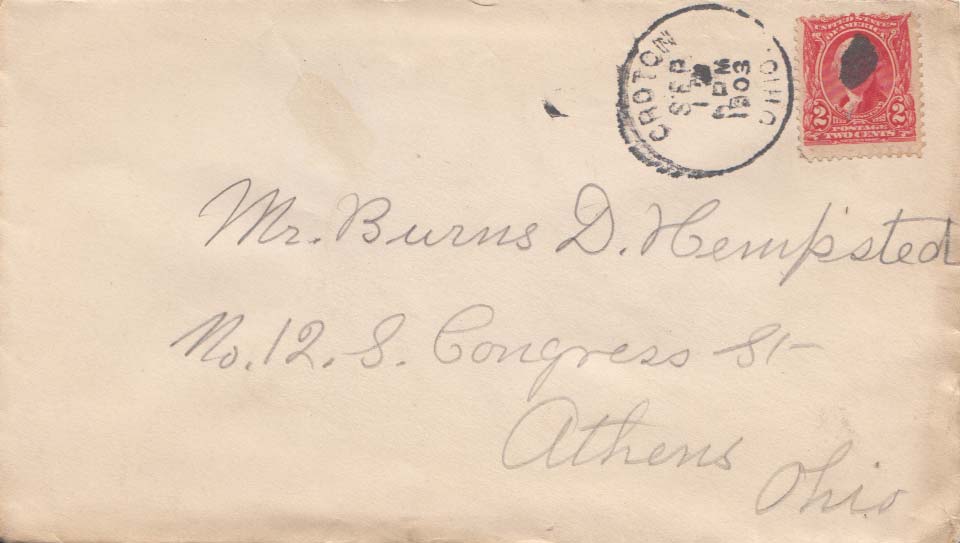 CROTON OHIO.
SEP
1
PM
1903
UNITED STATES
OF AMERICA
2 2
POSTAGE
TWO CENTS
Mr. Burns D. Hempsted
No. 12. S. Congress St
Athens
Ohio